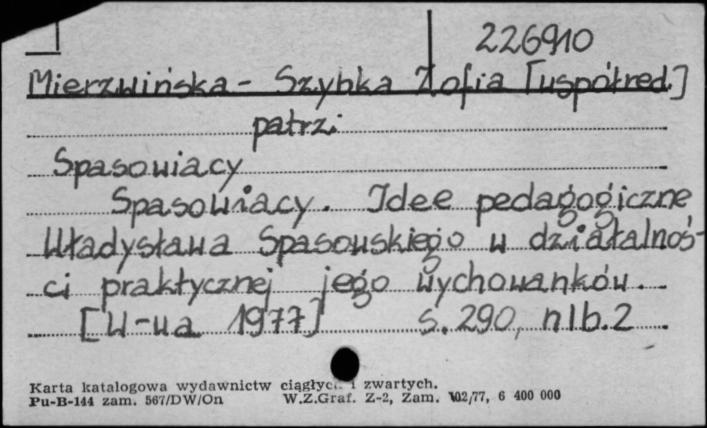 226910
Mierzwińska - Szybka Zofia [współred.]
patrz:
Spasowiacy
Spasowiacy. Idee pedagogiczne
Władysława Spasowskiego w działalnoś-
ci praktycznej jego wychowanków.
[W-wa 1977] s. 290, nlb. 2
Karta katalogowa wydawnictw ciągłych i zwartych.
Pu-B-144 zam. 567/DW/On W.Z.Graf. Z-2, Zam. 102/77, 6 400 000